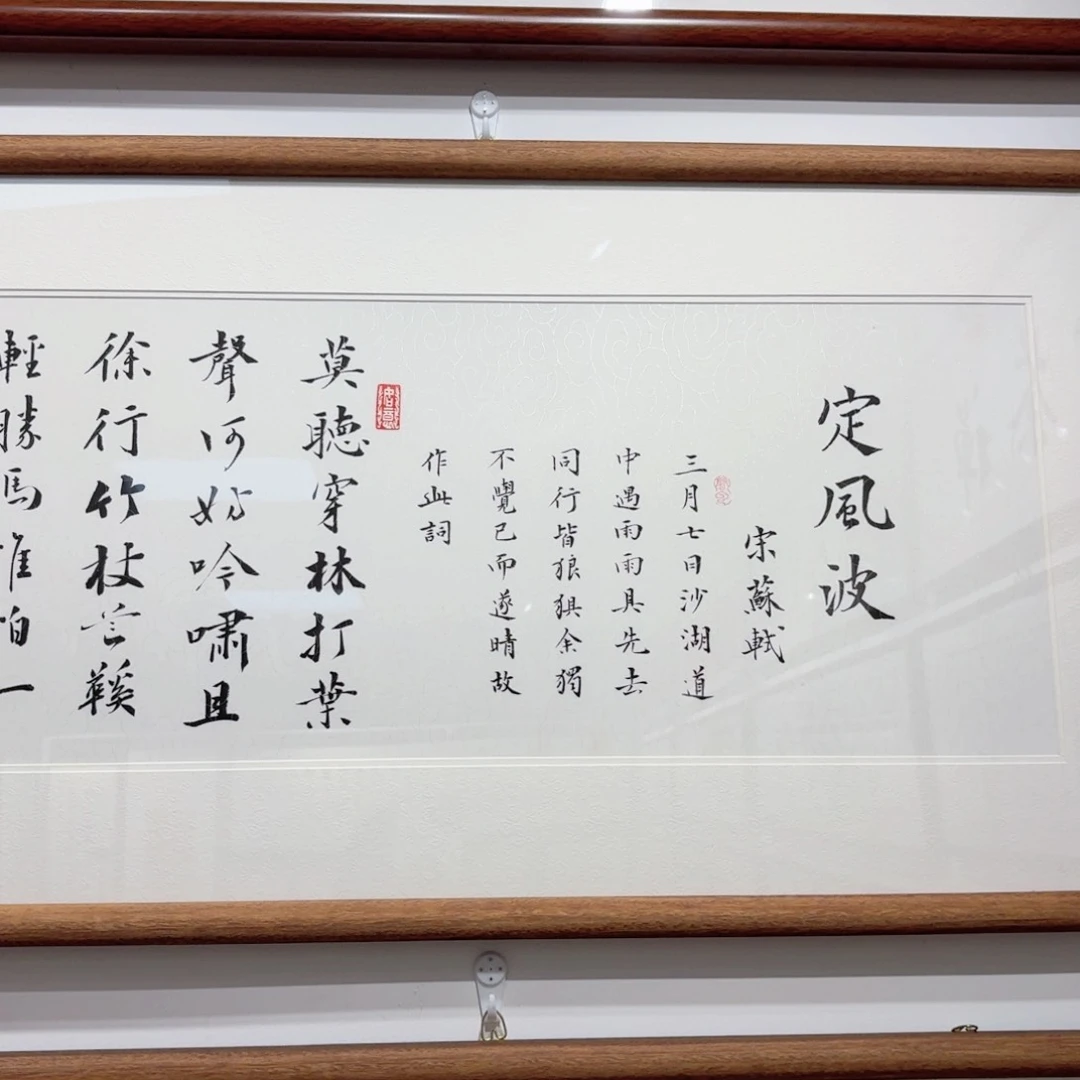 定風波
宋蘇軾
三月七日沙湖道
中遇雨雨具先去
同行皆狼狽余獨
不覺已而遂晴故
作此詞
莫聽穿林打葉
聲何妨吟嘯且
徐行竹杖芒鞵
輕勝馬誰怕一